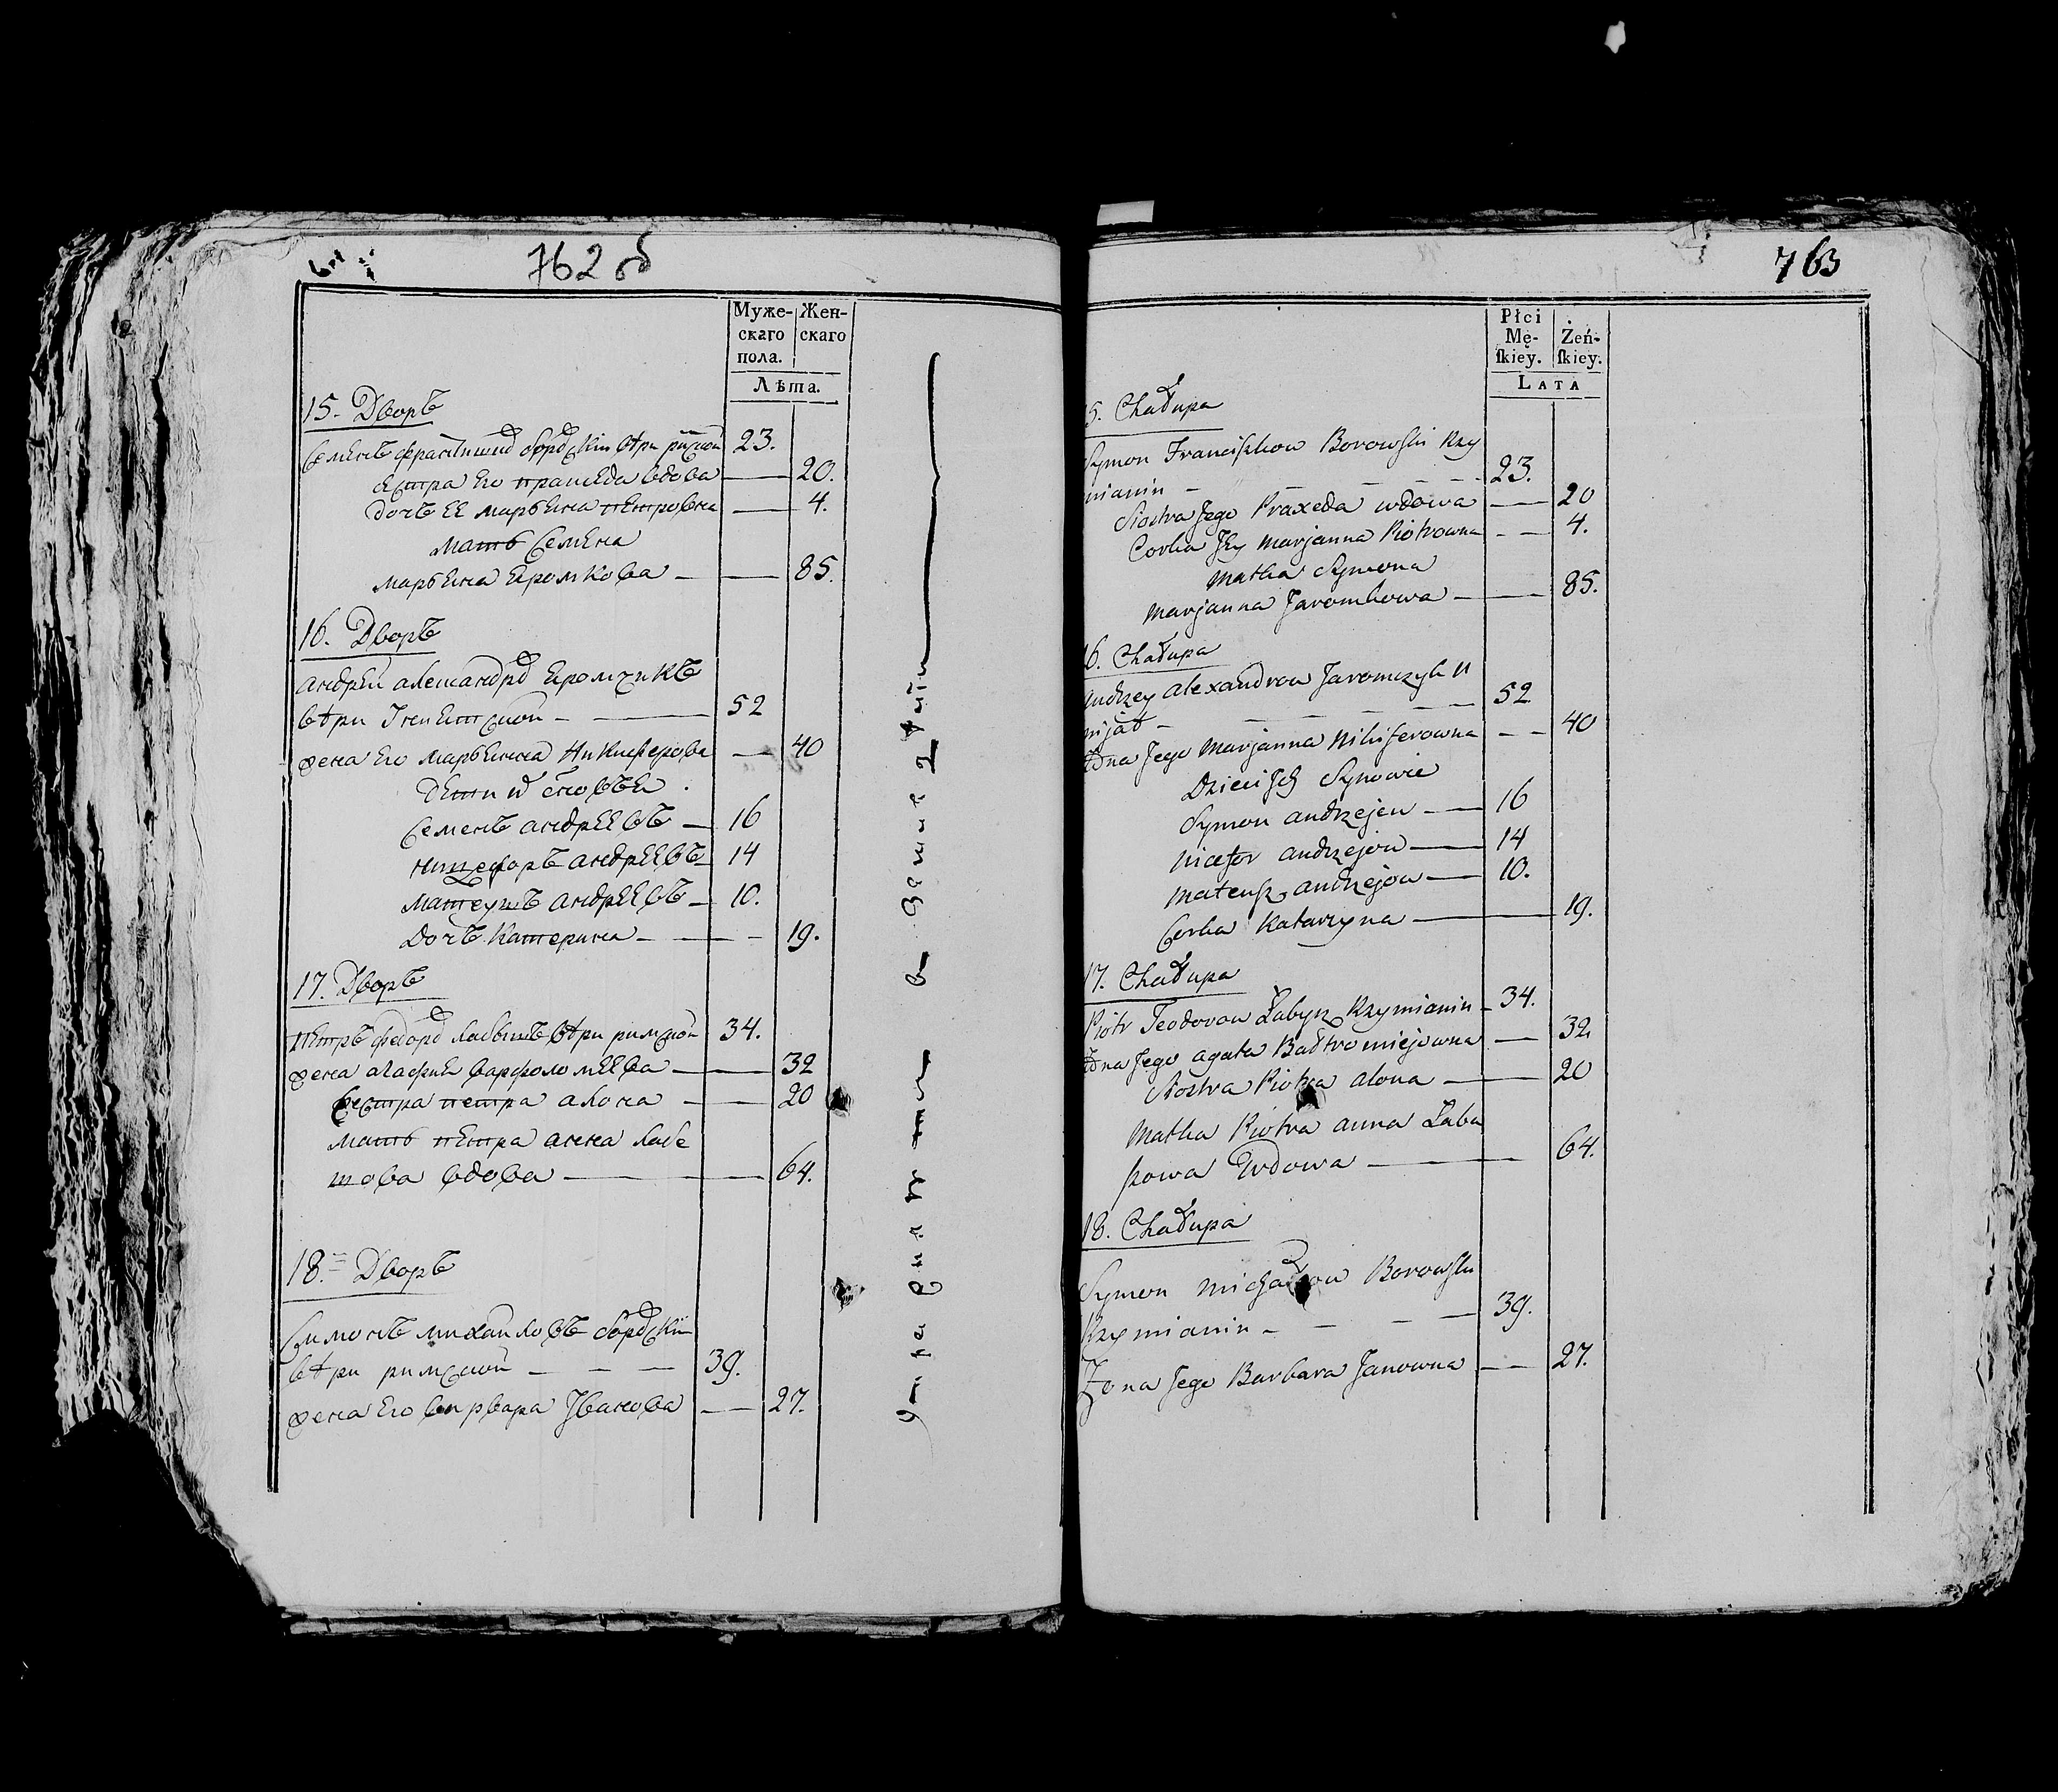 762 об
Муже-
скаго
пола.
Жен-
скаго
Лѣта.
15. Дворъ
Семенъ францишков боровскій вѣри римской 23.
сестра Его праксѣда вдова 20.
дочъ ЕЕ марьяна пѣтровна 4.
мать Семена
марьяна Яромкова 85.
16. Дворъ
андрей александров Яромчикъ
вѣри Унеятской 52
жена Его марьянна Никиферова 40
дети их сыновья
Семенъ андрѣевъ 16
андрѣевъ 14
матеушъ андрѣевъ 10.
Дочъ катерина 19.
17. Дворъ
пѣтръ федоров лабышъ вѣри римской 34.
жена агафия варфоломѣева 32
сестра петра алона 20
мать пѣтра анна лабе
шова вдова 64.
18. Дворъ
Симонъ михайловъ боровскій
вѣри римской 39.
жена Его варвара Иванова 27.
763
Płci
Mę-
ſkiey.
Żeń-
ſkiey.
LATA
5. Chałupa
Symon Franciszkow Borowski Rzy
mianin 23.
Siostra Jego Praxeda wdowa 20
Corka Jey Marjanna Piotrowna 4.
Matka Symona
Marjanna Jaromkowa 85.
6. Chałupa
Andrzey Alexandrow Jaromczyk U
nijat 52
Żona Jego Marjanna Nikiferowna 40
Dzieci Jch Synowie
Symon Andrzejew 16
Nicefor Andrzejow 14
Mateusz Andrzejow 10.
Corka Katarzyna 19.
17. Chałupa
Piotr Teodorow Łabysz Rzymianin 34.
Żona Jego Agata Bałtromiejowna 32
Siostra Piotra Alona 20
Matka Piotra Anna Łaby
szowa Wdowa 64.
18. Chałupa
Symon Michałow Borowski
Rzymianin 39.
Żona Jego Barbara Janowna 27.